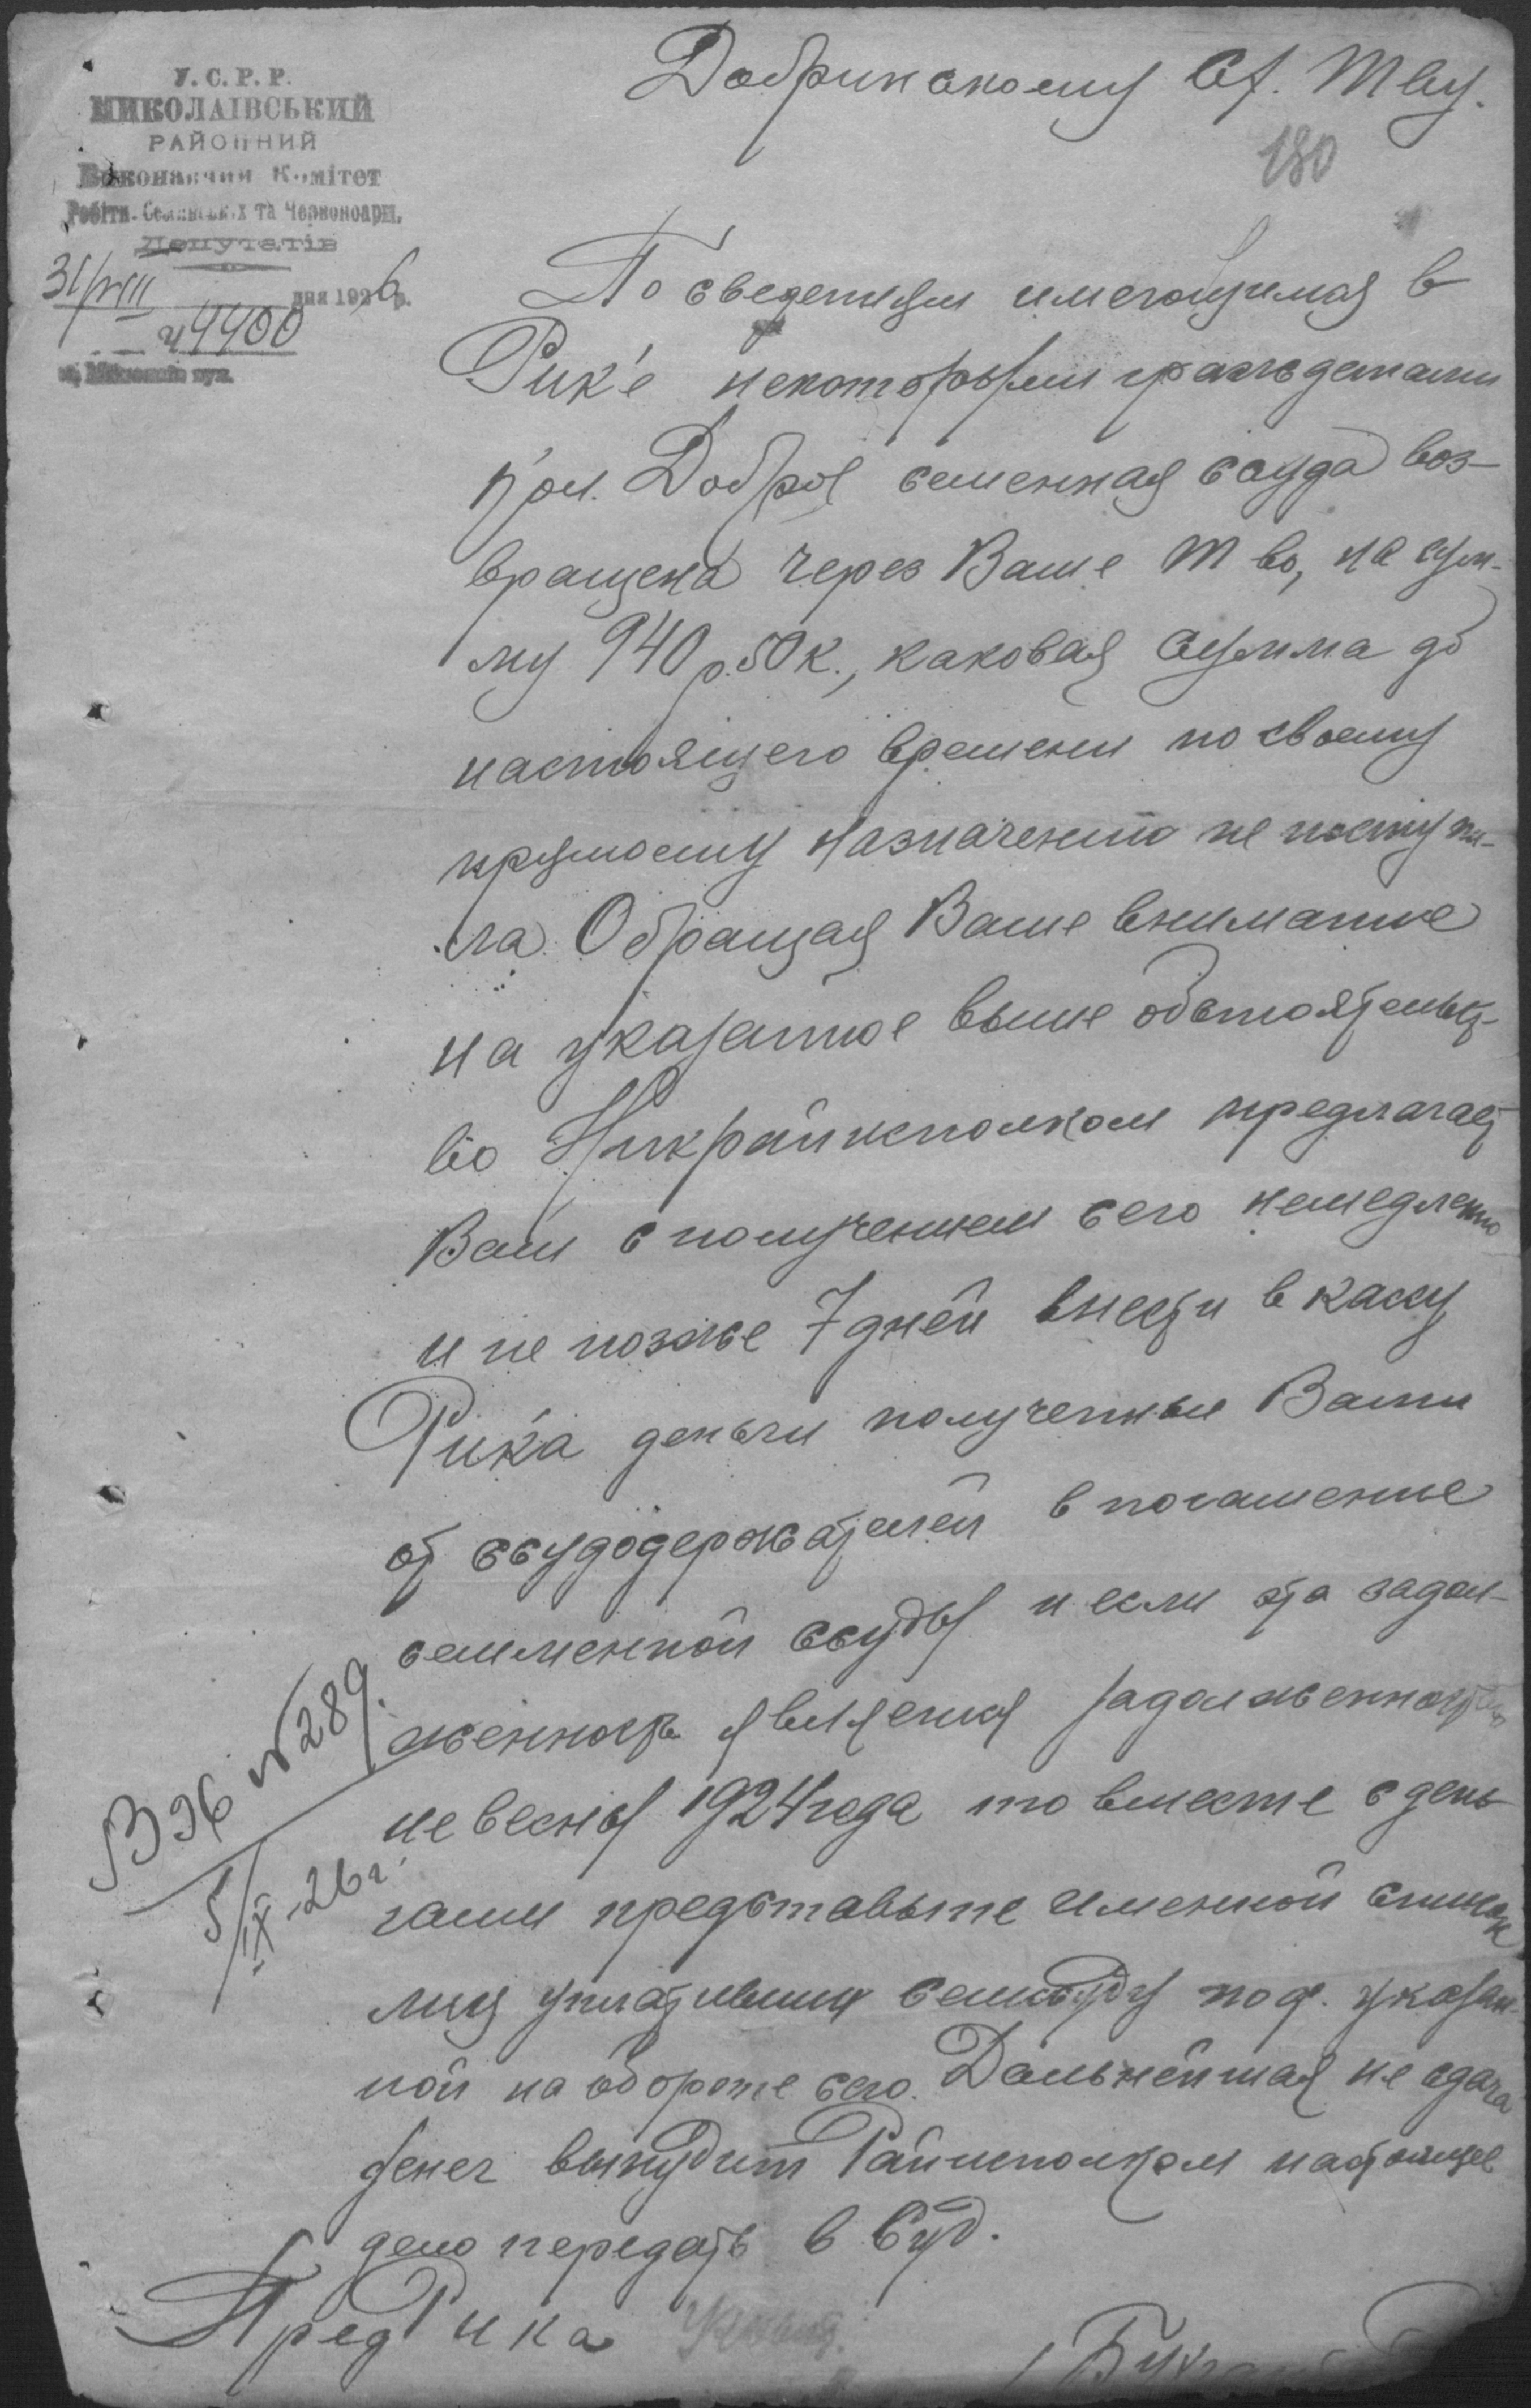 У.С.Р.Р.
МИКОЛАІВСЬКИЙ
РАЙОННИЙ
Виконавчий Комітет
Робітн. Селянських та Червоноарм.
Депутатів
31/VIII дня 1926 р.
ч 4400
Добринскому С/. Тву.
180
По сведениям имеющимся в
Рик'е некоторыми гражданами
кол. Доброе семенная ссуда воз-
вращена через Ваше Т во, на сум-
му 940 р. 50 к., каковая сумма до
настоящего времени по своему
прямому назначению не поступи-
ла. Обращая Ваше внимание
на указанное выше обстоятельст-
во Никрайисполком предлагает
Вам с получением сего немедленно
и не позже 7 дней внести в кассу
Рик'а деньги полученные Вами
от ссудодержателей в погашение
семменной ссуды и если эта задол-
женность является задолженностью
не весны 1924 года то вместе с день
гами представьте именной список
лиц уплативших семссуду по ф. указан-
ной на обороте сего. Дальнейшая не сдача
денег вынудит Райисполком настоящее
дело передать в Суд.
Вх № 289.
5/IX-26 г.
Пред Рика